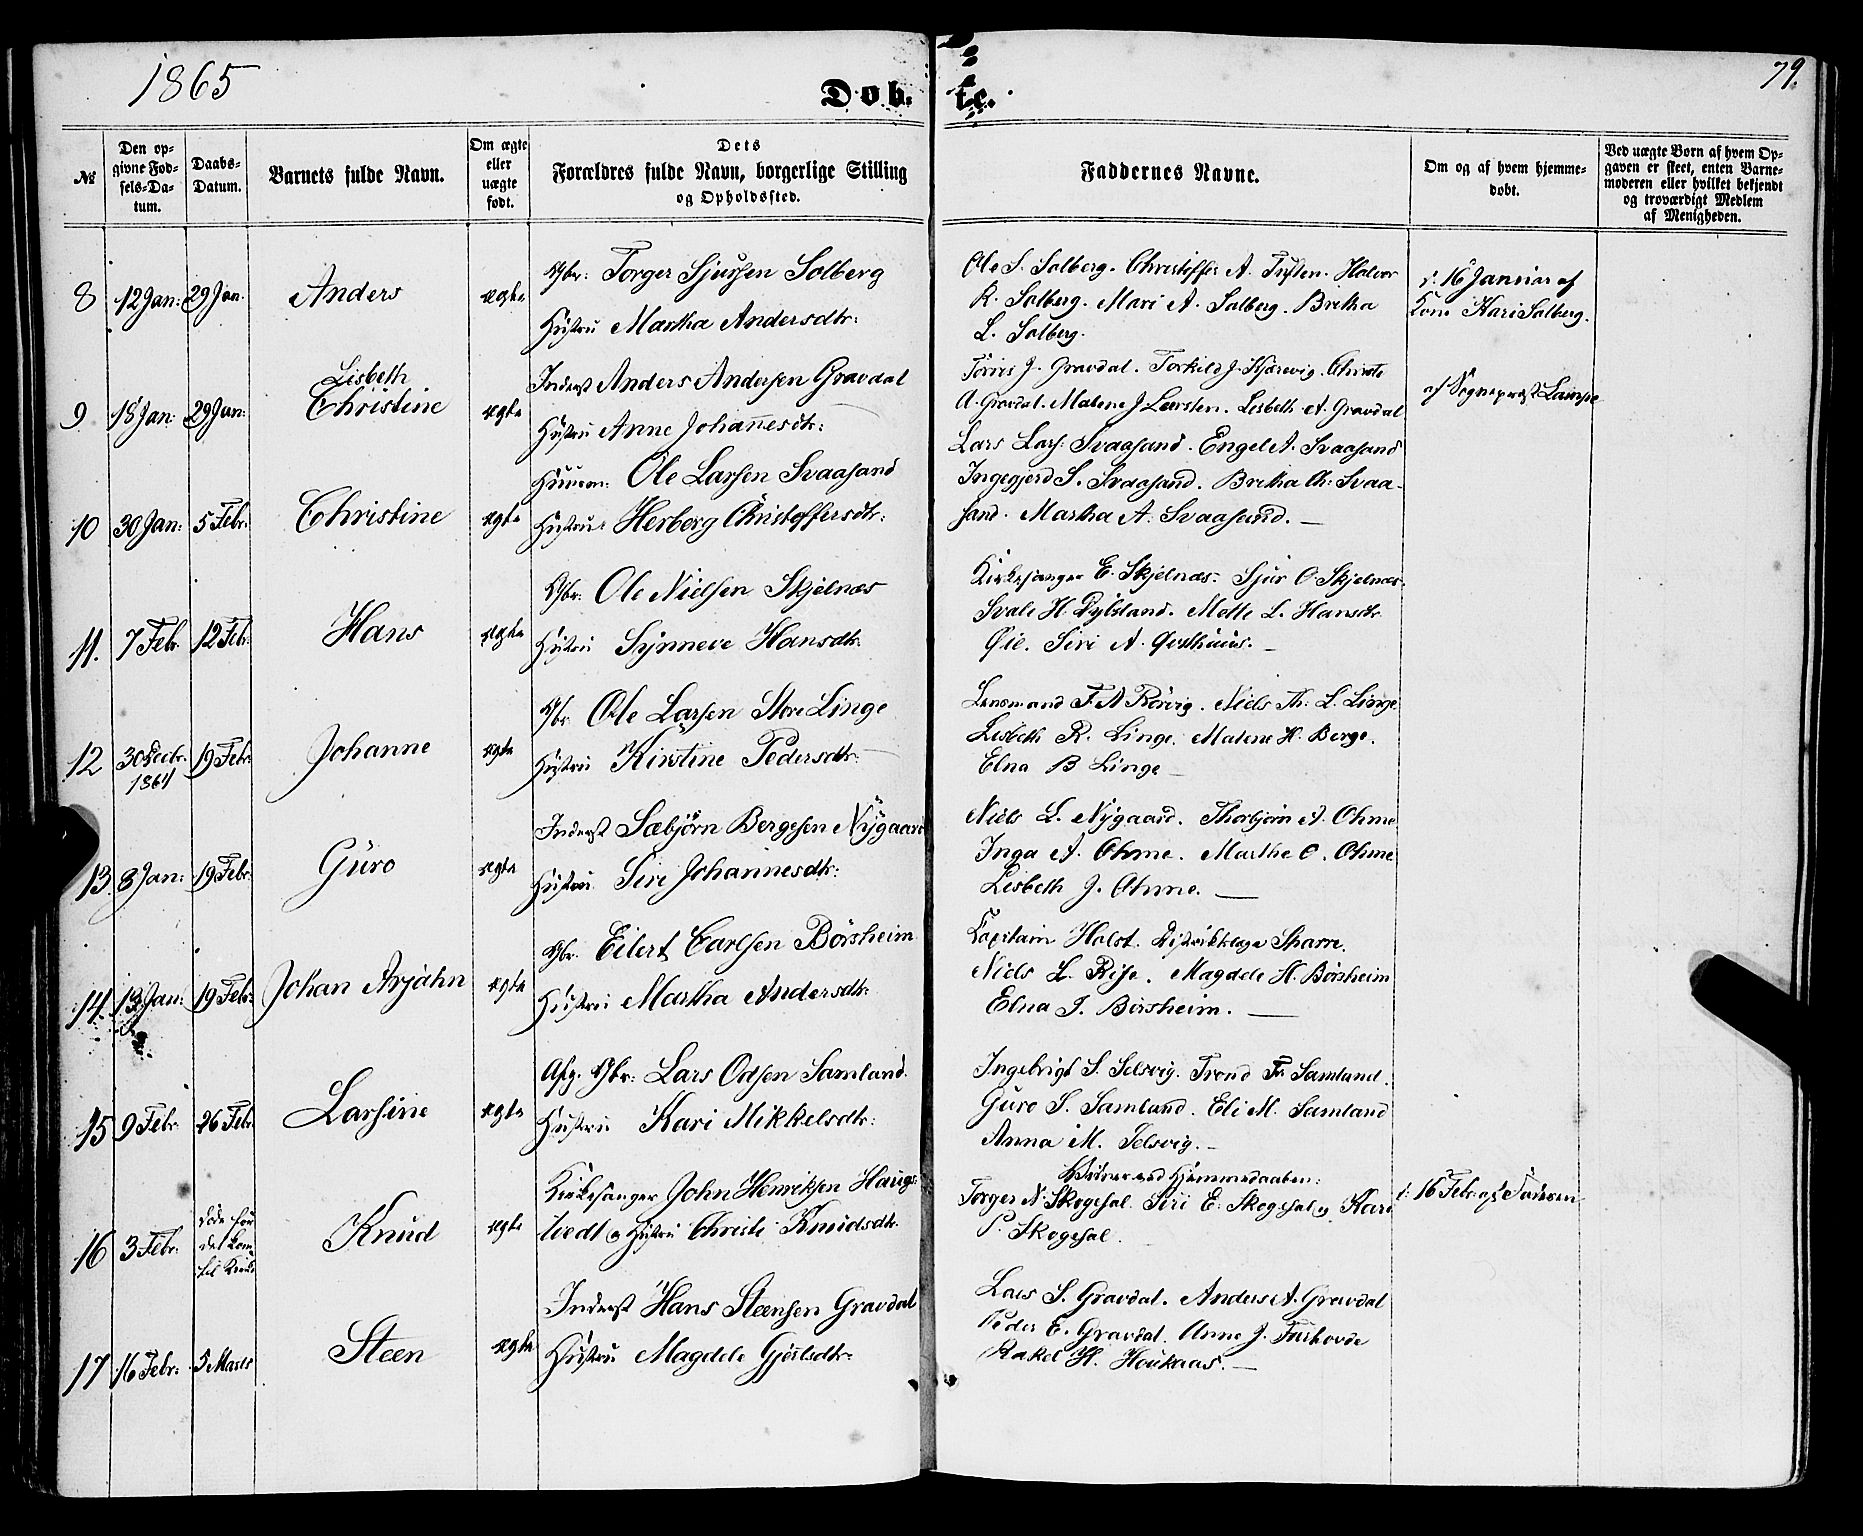 1865
79.
Døb.
te.
№
Den op-
givne Fød-
sels-Da-
tum.
Daabs-
Datum.
Barnets fulde Navn.
Om ægte
eller
uægte
født.
Dets
Forældres fulde Navn, borgerlige Stilling
og Opholdssted.
Faddernes Navne.
Om og af hvem hjemme-
døbt.
Ved uægte Børn af hvem Op-
gaven er skeet, enten Barne-
moderen eller hvilket bekjendt
og troværdigt Medlem
af Menigheden.
8 12 Jan: 29 Jan: Anders ægte
Gbr: Torger Sjursen Solberg
Hustru Martha Andersdtr:
Ole S. Solberg. Christoffer A. Halvor
R. Solberg. Mari A. Solberg. Bretha
L. Solberg.
i: 16 Januar af
Kone Kari Solberg.
9 18 Jan: 29 Jan: Lisbeth
Christine ægte
Inderst Anders Andersen Gravdal
Hustru Anne Johannesdtr:
J. Gravdal. Torkild J. Kjærevig.
A. Gravdal. Malene J. Lisbeth A. Gravdal
af Sognepræst Lampe
10 30 Jan: 5 Febr: Christine ægte
Huusm: Ole Larsen Svaasand
Hustru Herborg Christoffersdtr:
Lars Lars: Svaasand. Engel A. Svaasand
Ingegjerd S. Svaasand. Bretha Ch: Svaa-
sand. Martha A. Svaasand. —
11. 7 Feb: 12 Feb: Hans ægte
Gbr: Ole Nielsen Skjelnæs
Hustru Synneve Hansdtr:
Kirkesanger E. Skjelnæs. Sjur O. Skjelnæs.
Svale H. Dybsland. Mette L. Hansdtr
Øie. Siri A. —
12 30 Decbr: 19 Febr: Johanne ægte
1864
Gbr: Ole Larsen Store Linge
Hustru Kirstine Pedersdtr:
Lensmand F. A. Rørvig. Niels Th: L. Linge
Lisbeth R. Linge. Malene H. Berge.
Elna B Linge —
13 8 Jan: 19 Febr: Guro ægte
Inderst Sæbjörn Bergesen Nygaard
Hustru Siri Johannesdtr:
Niels L. Nygaard. Thorbjörn A. Ohme
Inga A. Ohme. Marthe O. Ohme
Lisbeth J. Ohme. —
14. 13 Jan: 19 Febr: Johan Arjahn ægte
Gbr: Eilert Carlsen Börsheim
Hustru Martha Andersdtr:
Kapitain Holst. Distriktslæge Sharre.
Niels L. Rise. Magdele H. Börsheim
Elna J. Börsheim. —
15 9 Febr: 26 Febr: Larsine ægte
Afg. Gbr: Lars Odsen Samland.
Hustru Kari Mikkelsdtr:
Ingebrigt S. Selsvig. Trond Fr Samland.
Guro S. Samland. Eli M. Samland
Anna M. Selsvig. —
16 3 Febr: døde før
det kom
til Kirke Knud ægte
Kirkesanger John Henriksen Haugs-
tvedt og Hustru Christi Knudsdtr.
Vidner ved Hjemmedaaben:
Torger N. Skogesal. Siri E. Skogesal og Kari
P. Skogesal.
i: 16 Febr: af Faderen
17 16 Febr: 5 Marts Steen ægte
Inderst Hans Steensen Gravdal
Hustru Magdele Gjertsdtr:
Lars S. Gravdal. Anders A. Gravdal
Peder E. Gravdal. Anne J.
Rakel H. Houkaas. —